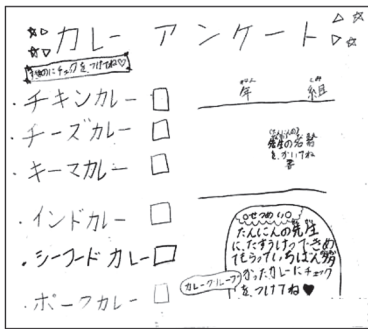 カレーアンケート
すきなのにチェックを、つけてね♡
・チキンカレー□
・チーズカレー□
・キーマカレー□
・インドカレー□
・シーフードカレー□
・ポークカレー□
年 組
先生の名前
を、かいてね
○せつめい○
たんにんの先生
に、たすうけつできめ
てもらっていちばん多
かったカレーにチェック
を、つけてね♥
カレーグループ